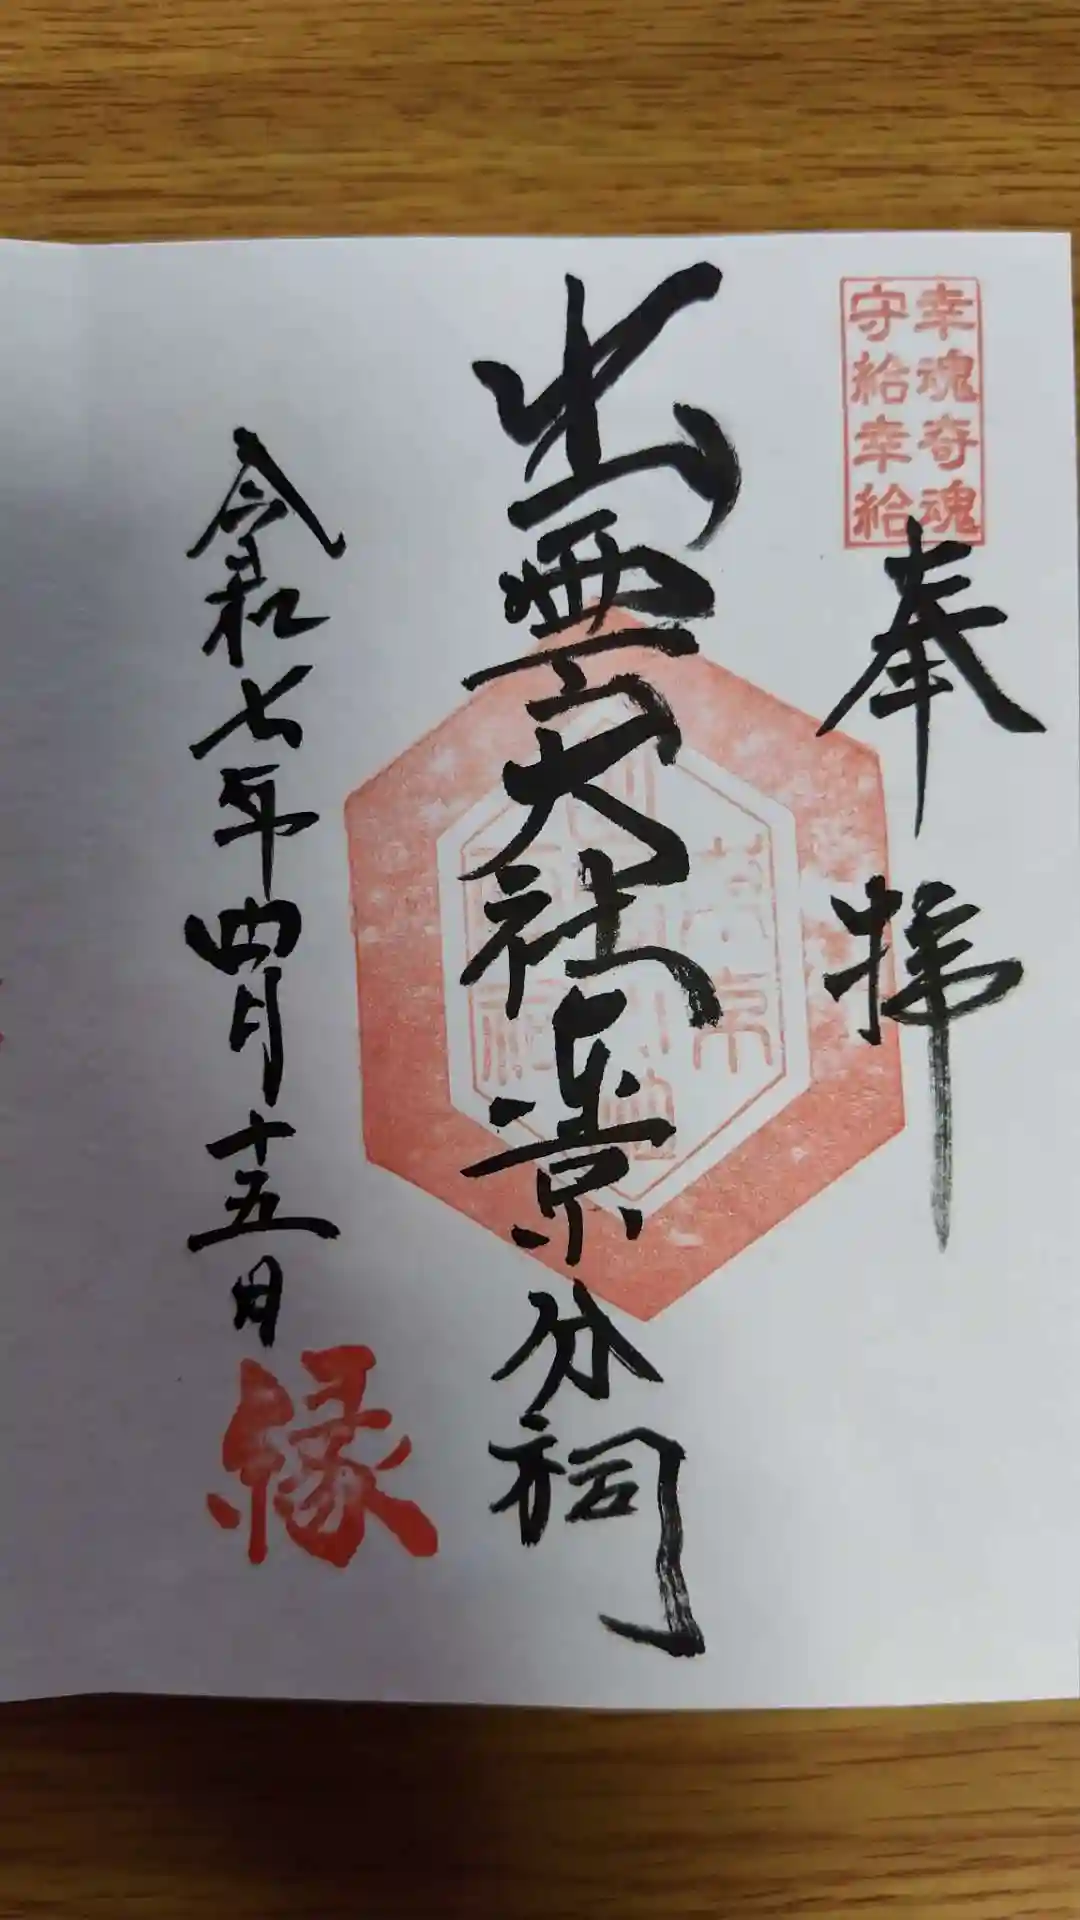 幸魂奇魂
守給幸給
奉拝
出雲大社東京分祠
令和七年四月十五日
縁